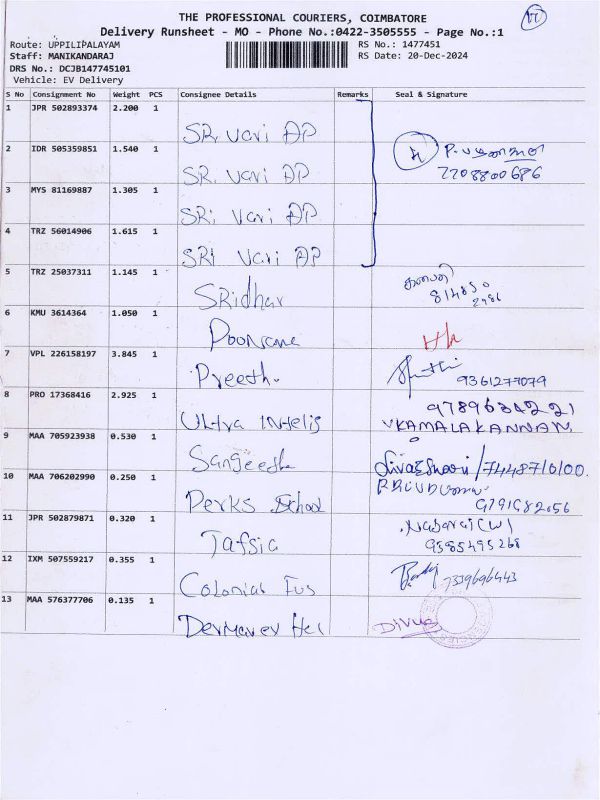 THE PROFESSIONAL COURIERS, COIMBATORE
Delivery Runsheet - MO - Phone No.:0422-3505555 - Page No.:1
Route: UPPILIPALAYAM RS No.: 1477451
Staff: MANIKANDARAJ RS Date: 20-Dec-2024
DRS No.: DCJB147745101
Vehicle: EV Delivery
S No Consignment No Weight PCS Consignee Details Remarks Seal & Signature
1 JPR 502893374 2.200 1 SR. Vari AP
2 IDR 505359851 1.540 1 SR. Vari AP
7708800686
3 MYS 81169887 1.305 1 SRi Vari AP
4 TRZ 56014906 1.615 1 SRI Vari AP
5 TRZ 25037311 1.145 1 SRidhar
6 KMU 3614364 1.050 1
7 VPL 226158197 3.845 1 Preeth. 9361277079
8 PRO 17368416 2.925 1 Ultra Intelis
VKAMALAKANNAN.
9 MAA 705923938 0.530 1 Sangeetha
10 MAA 706202990 0.250 1 Perks School
11 JPR 502879871 0.320 1 Tafsia
9585495268
12 IXM 507559217 0.355 1 Colonial Fus
13 MAA 576377706 0.135 1